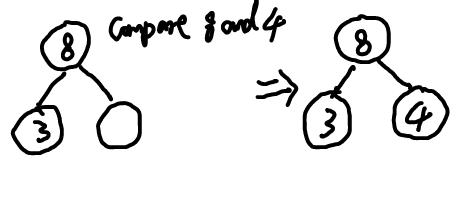 Compare 8 and 4
8
3
8
3
4